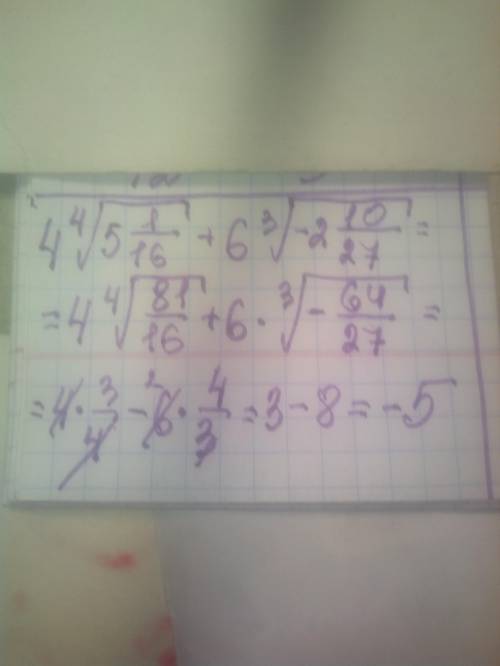 4 ⁴√(5 1/16) + 6 ³√(-2 10/27) =
= 4 ⁴√(81/16) + 6 · ³√(- 64/27) =
= 4 · 3/4 - 6 · 4/3 = 3 - 8 = -5